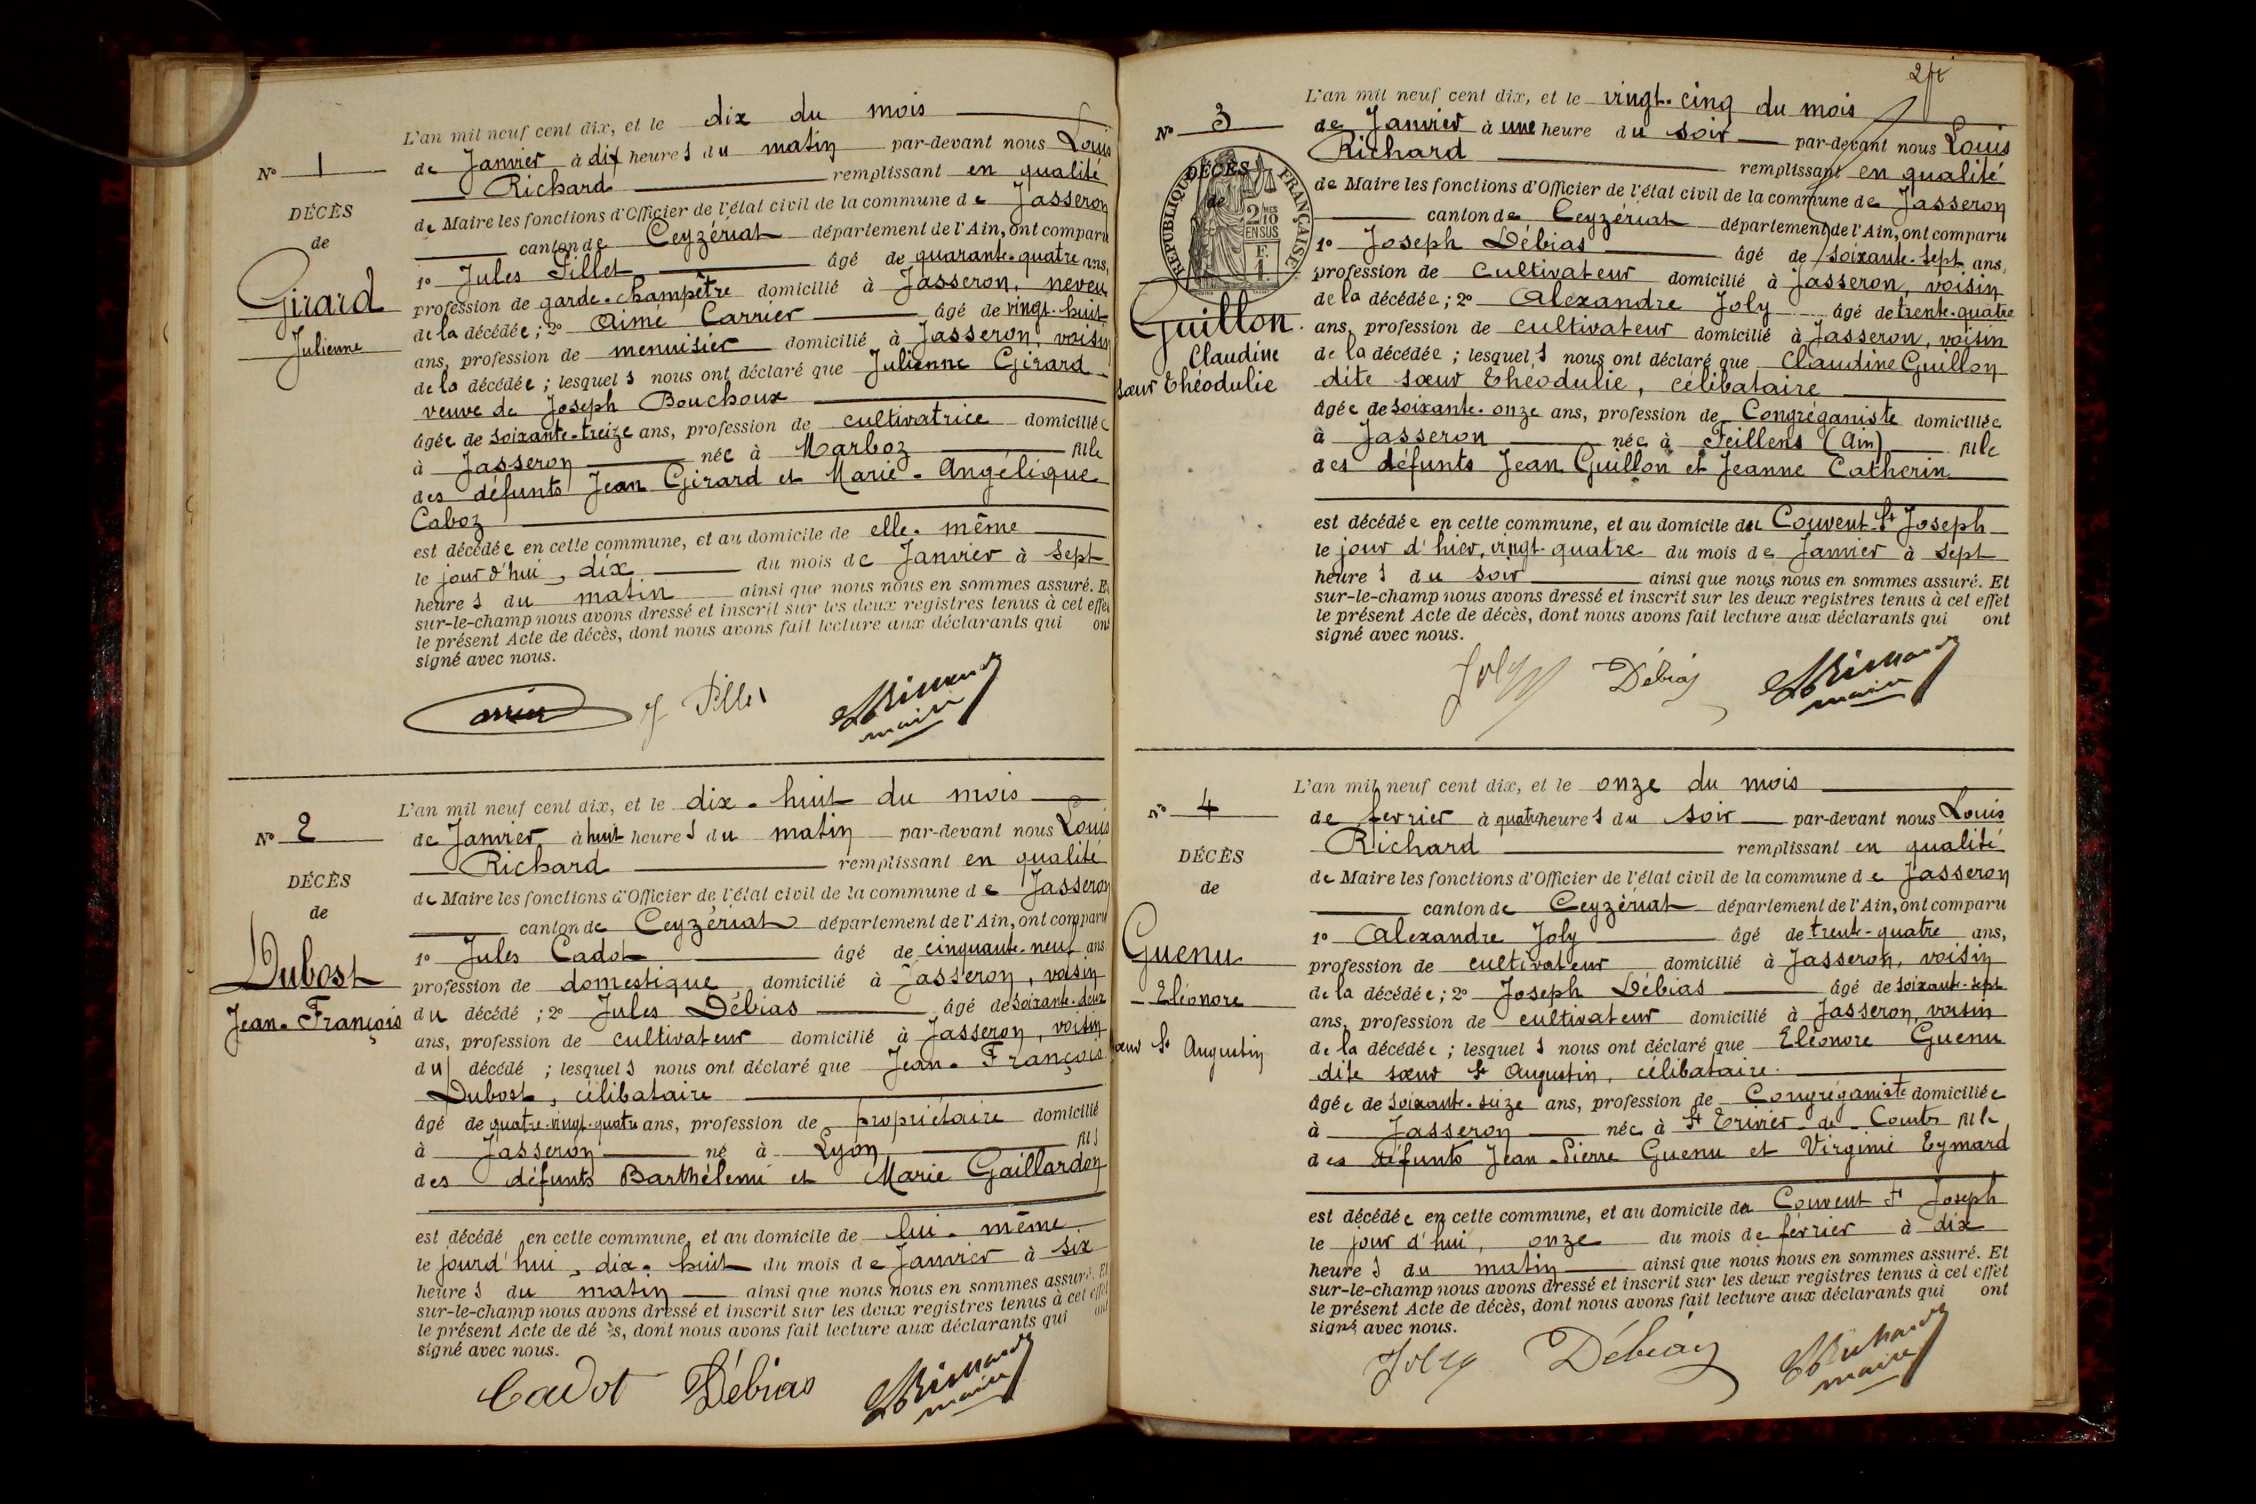 N° 1
DÉCÈS
de
Girard
Julienne
L'an mil neuf cent dix, et le dix du mois
de Janvier à dix heures du matin par-devant nous Louis
Richard remplissant en qualité
de Maire les fonctions d'Officier de l'état civil de la commune de Jasseron
canton de Ceyzériat département de l'Ain, ont comparu
1° Jules Pillet âgé de quarante-quatre ans,
profession de garde-champêtre domicilié à Jasseron, neveu
de la décédée ; 2° Aimé Carrier âgé de vingt-huit
ans, profession de menuisier domicilié à Jasseron, voisin
de la décédée ; lesquels nous ont déclaré que Julienne Girard
veuve de Joseph Bouchoux
âgée de soixante-treize ans, profession de cultivatrice domiciliée
à Jasseron née à Marboz fille
des défunts Jean Girard et Marie-Angélique
Caboz
est décédée en cette commune, et au domicile de elle-même
le jour d'hui, dix du mois de Janvier à sept
heures du matin ainsi que nous nous en sommes assuré. Et
sur-le-champ nous avons dressé et inscrit sur les deux registres tenus à cet effet
le présent Acte de décès, dont nous avons fait lecture aux déclarants qui ont
signé avec nous.
Carrier J Pillet Richard
maire
N° 2
DÉCÈS
de
Dubost
Jean-François
L'an mil neuf cent dix, et le dix-huit du mois
de Janvier à huit heures du matin par-devant nous Louis
Richard remplissant en qualité
de Maire les fonctions d'Officier de l'état civil de la commune de Jasseron
canton de Ceyzériat département de l'Ain, ont comparu
1° Jules Cadot âgé de cinquante-neuf ans
profession de domestique domicilié à Jasseron, voisin
du décédé ; 2° Jules Débias âgé de soixante-deux
ans, profession de cultivateur domicilié à Jasseron, voisin
du décédé ; lesquels nous ont déclaré que Jean-François
Dubost, célibataire
âgé de quatre-vingt-quatre ans, profession de propriétaire domicilié
à Jasseron né à Lyon fils
des défunts Barthélemi et Marie Gaillardon
est décédé en cette commune, et au domicile de lui-même
le jourd'hui, dix-huit du mois de Janvier à six
heures du matin ainsi que nous nous en sommes assuré. Et
sur-le-champ nous avons dressé et inscrit sur les deux registres tenus à cet effet
le présent Acte de décès, dont nous avons fait lecture aux déclarants qui ont
signé avec nous.
Cadot Débias Richard
maire
N° 3
DÉCÈS
de
RÉPUBLIQUE FRANÇAISE
2/10 EN SUS
F. 1.
Guillon
Claudine
sœur Théodulie
L'an mil neuf cent dix, et le vingt-cinq du mois
de Janvier à une heure du soir par-devant nous Louis
Richard remplissant en qualité
de Maire les fonctions d'Officier de l'état civil de la commune de Jasseron
canton de Ceyzériat département de l'Ain, ont comparu
1° Joseph Débias âgé de soixante-sept ans,
profession de cultivateur domicilié à Jasseron, voisin
de la décédée ; 2° Alexandre Joly âgé de trente-quatre
ans, profession de cultivateur domicilié à Jasseron, voisin
de la décédée ; lesquels nous ont déclaré que Claudine Guillon
dite sœur Théodulie, célibataire
âgée de soixante-onze ans, profession de Congréganiste domiciliée
à Jasseron née à Feillens (Ain) fille
des défunts Jean Guillon et Jeanne Catherin
est décédée en cette commune, et au domicile du Couvent St Joseph
le jour d'hier, vingt-quatre du mois de Janvier à sept
heures du soir ainsi que nous nous en sommes assuré. Et
sur-le-champ nous avons dressé et inscrit sur les deux registres tenus à cet effet
le présent Acte de décès, dont nous avons fait lecture aux déclarants qui ont
signé avec nous.
Joly Débias Richard
maire
N° 4
DÉCÈS
de
Guenu
Eléonore
sœur St Augustin
L'an mil neuf cent dix, et le onze du mois
de fevrier à quatre heures du soir par-devant nous Louis
Richard remplissant en qualité
de Maire les fonctions d'Officier de l'état civil de la commune de Jasseron
canton de Ceyzériat département de l'Ain, ont comparu
1° Alexandre Joly âgé de trente-quatre ans,
profession de cultivateur domicilié à Jasseron, voisin
de la décédée ; 2° Joseph Débias âgé de soixante-sept
ans, profession de cultivateur domicilié à Jasseron, voisin
de la décédée ; lesquels nous ont déclaré que Eléonore Guenu
dite sœur St Augustin, célibataire.
âgée de soixante-seize ans, profession de Congréganiste domiciliée
à Jasseron née à St Trivier-de-Courts fille
des défunts Jean-Pierre Guenu et Virginie Eymard
est décédée en cette commune, et au domicile du Couvent St Joseph
le jour d'hui, onze du mois de février à dix
heures du matin ainsi que nous nous en sommes assuré. Et
sur-le-champ nous avons dressé et inscrit sur les deux registres tenus à cet effet
le présent Acte de décès, dont nous avons fait lecture aux déclarants qui ont
signé avec nous.
Joly Débias Richard
maire